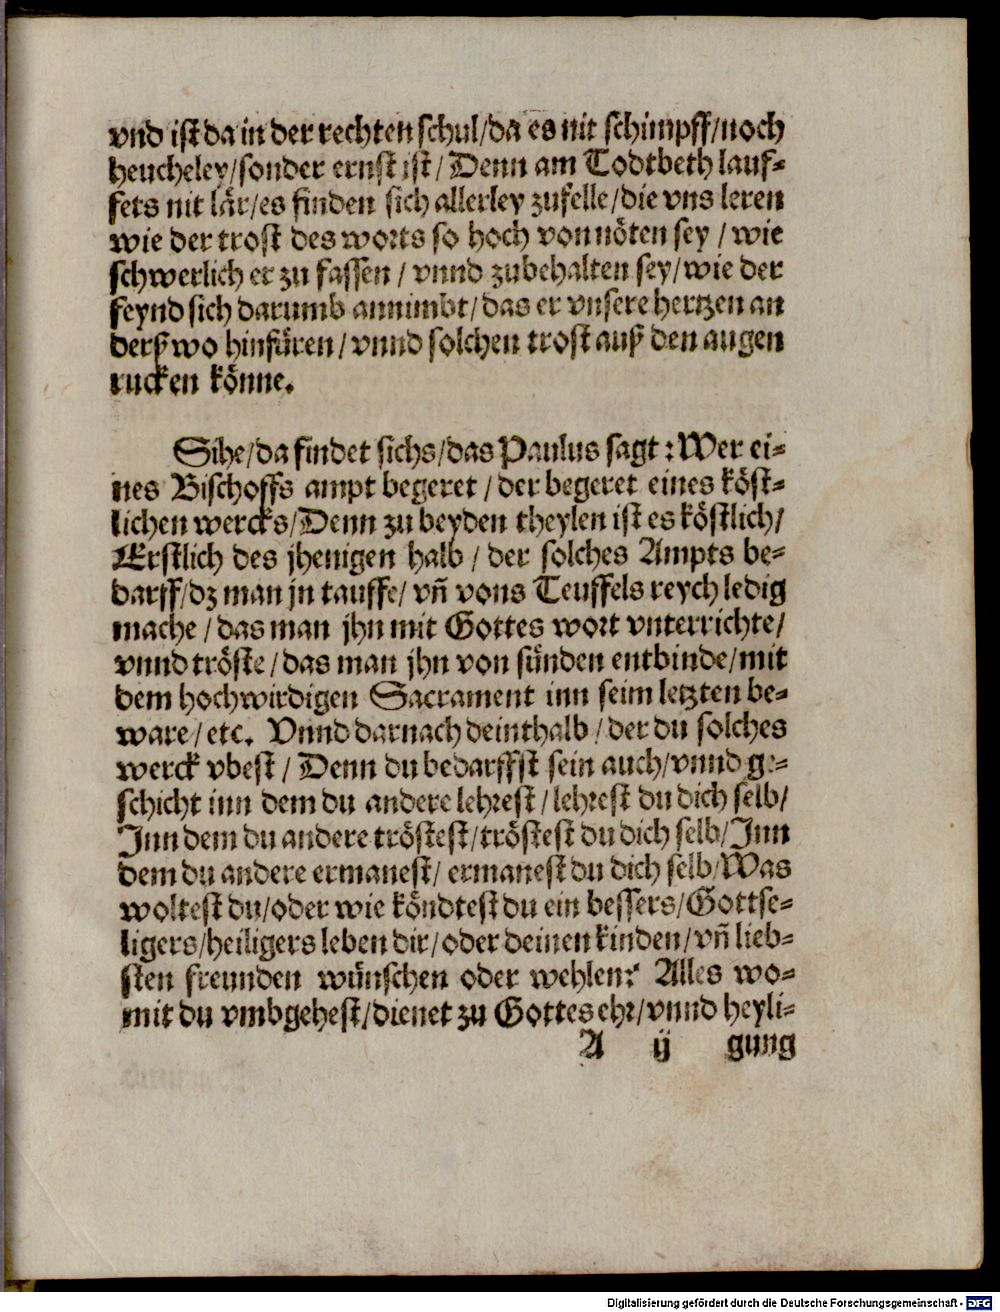 vnd ist da in der rechten schul/da es nit schimpff/noch
heucheley/sonder ernst ist/Denn am Todtbeth lauf-
fets nit lär/es finden sich allerley zufelle/die vns leren
wie der trost des worts so hoch von nöten sey/wie
schwerlich er zu fassen/vnnd zubehalten sey/wie der
feynd sich darumb annimbt/das er vnsere hertzen an
derßwo hinfüren/vnnd solchen trost auß den augen
rucken könne.
Sihe/da findet sichs/das Paulus sagt:Wer ei-
nes Bischoffs ampt begeret/der begeret eines köst-
lichen wercks/Denn zu beyden theylen ist es köstlich/
Erstlich des jhenigen halb/der solches Ampts be-
darff/dz man jn tauffe/vñ vons Teuffels reych ledig
mache/das man jhn mit Gottes wort vnterrichte/
vnnd tröste/das man jhn von sünden entbinde/mit
dem hochwirdigen Sacrament inn seim letzten be-
ware/etc. Vnnd darnach deinthalb/der du solches
werck vbest/Denn du bedarffst sein auch/vnnd ge-
schicht inn dem du andere lehrest/lehrest du dich selb/
Inn dem du andere tröstest/tröstest du dich selb/Inn
dem du andere ermanest/ermanest du dich selb/Was
woltest du/oder wie köndtest du ein bessers/Gottse-
ligers/heiligers leben dir/oder deinen kinden/vñ lieb-
sten freunden wünschen oder wehlen? Alles wo-
mit du vmbgehest/dienet zu Gottes ehr/vnnd heyli-
A ij gung
Digitalisierung gefördert durch die Deutsche Forschungsgemeinschaft - DFG